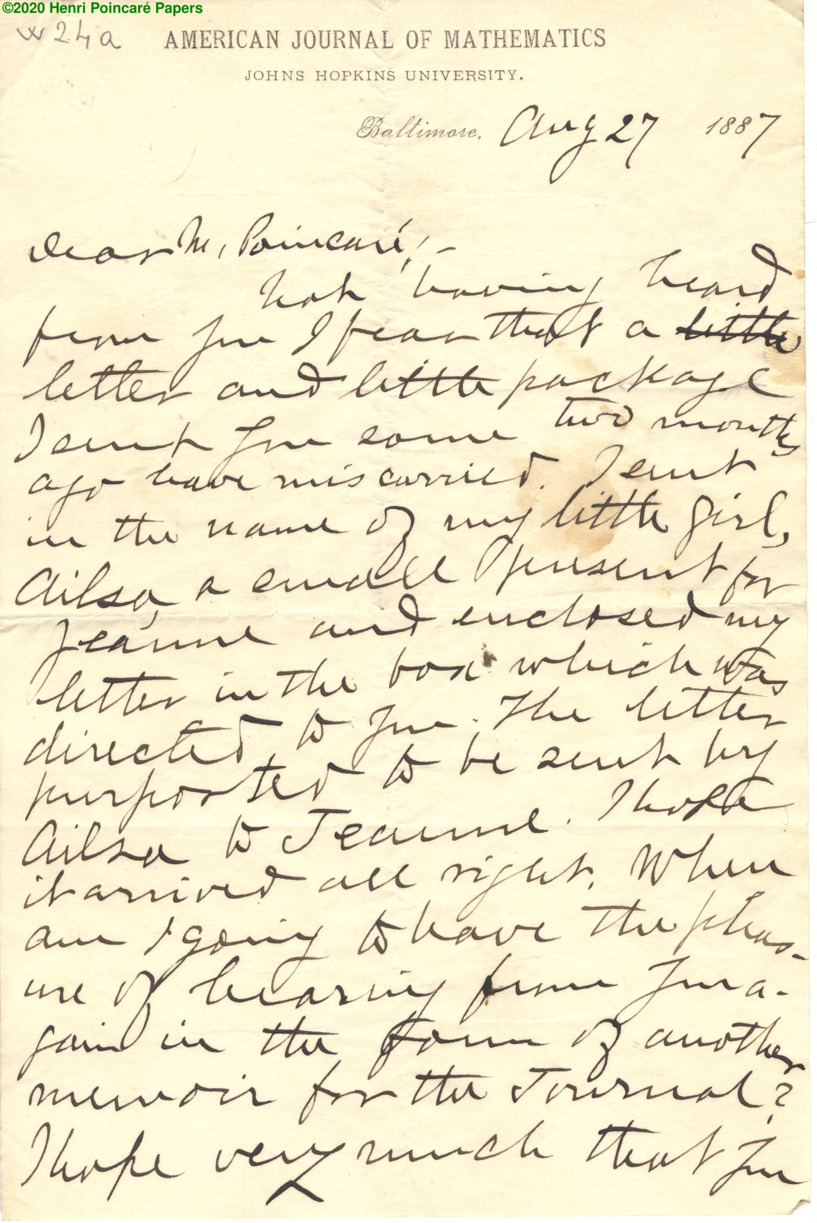 ©2020 Henri Poincaré Papers
w24a
AMERICAN JOURNAL OF MATHEMATICS
JOHNS HOPKINS UNIVERSITY.
Baltimore, Aug 27 1887
Dear M, Poincaré,:-
Not having heard
from you I fear that a little
letter and little package
I sent you some two months
ago have miscarried. I sent
in the name of my little girl,
Ailsa, a small present for
Jeanne and enclosed my
letter in the box which was
directed to you. The letter
purported to be sent by
Ailsa to Jeanne. I hope
it arrived all right. When
am I going to have the pleas-
ure of hearing from you a-
gain in the form of another
memoir for the Journal?
I hope very much that you